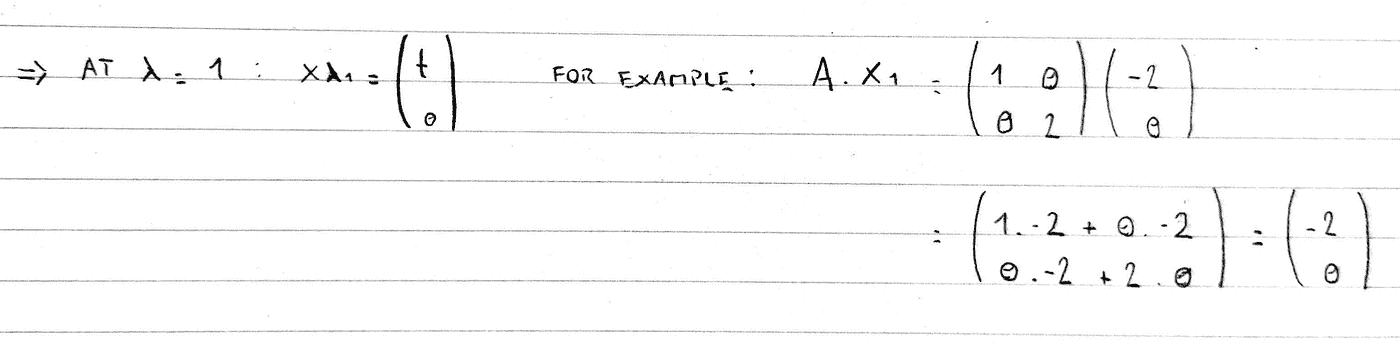 ⇒ AT λ = 1 : Xλ₁ = (t ; 0) FOR EXAMPLE : A . X₁ = (1 0 ; 0 2) (-2 ; 0)
= (1 . -2 + 0 . -2 ; 0 . -2 + 2 . 0) = (-2 ; 0)